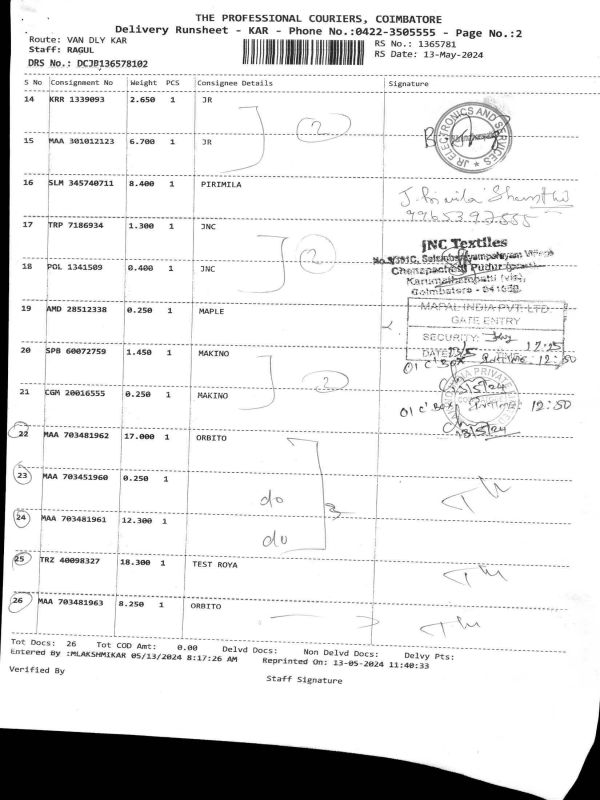 THE PROFESSIONAL COURIERS, COIMBATORE
Delivery Runsheet - KAR - Phone No.:0422-3505555 - Page No.:2
Route: VAN DLY KAR
RS No.: 1365781
Staff: RAGUL
RS Date: 13-May-2024
DRS No.: DCJB136578102
S No Consignment No Weight PCS Consignee Details Signature
14 KRR 1339093 2.650 1 JR
2
JR ELECTRONICS AND SERVICES
15 MAA 301012123 6.700 1 JR
16 SLM 345740711 8.400 1 PIRIMILA
9965397555
17 TRP 7186934 1.300 1 JNC
2
JNC Textiles
18 POL 1341509 0.400 1 JNC
Karumathampatti (via),
Coimbatore - 641659.
19 AMD 28512338 0.250 1 MAPLE
MAPAL INDIA PVT. LTD
GATE ENTRY
SECURITY:
DATE 12:25
20 SPB 60072759 1.450 1 MAKINO
01 C' Box 12:50
2
13/5/24
21 CGM 20016555 0.250 1 MAKINO
01 C' Box 12:50
13/5/24
22 MAA 703481962 17.000 1 ORBITO
23 MAA 703451960 0.250 1
do
3
24 MAA 703481961 12.300 1
do
25 TRZ 40098327 18.300 1 TEST ROYA
26 MAA 703481963 8.250 1 ORBITO
Tot Docs: 26 Tot COD Amt: 0.00 Delvd Docs: Non Delvd Docs: Delvy Pts:
Entered By :MLAKSHMIKAR 05/13/2024 8:17:26 AM Reprinted On: 13-05-2024 11:40:33
Verified By
Staff Signature